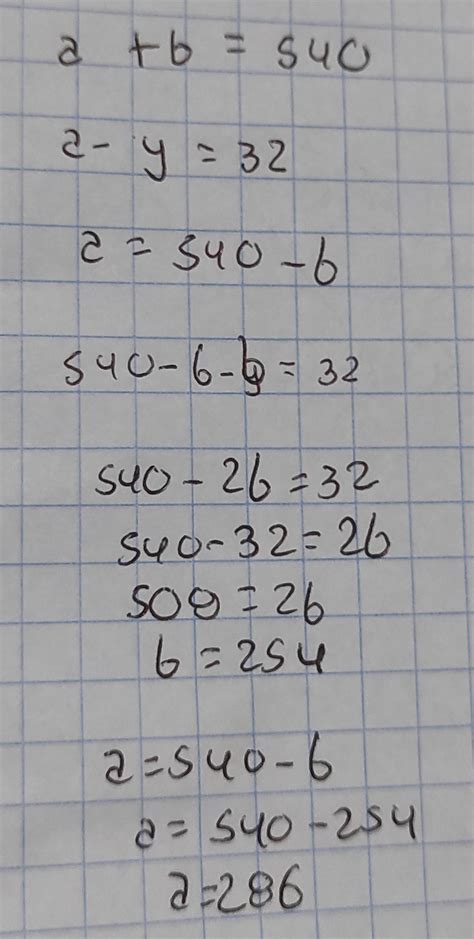 a + b = 540
a - y = 32
a = 540 - b
540 - b - b = 32
540 - 2b = 32
540 - 32 = 2b
508 = 2b
b = 254
a = 540 - b
a = 540 - 254
a = 286